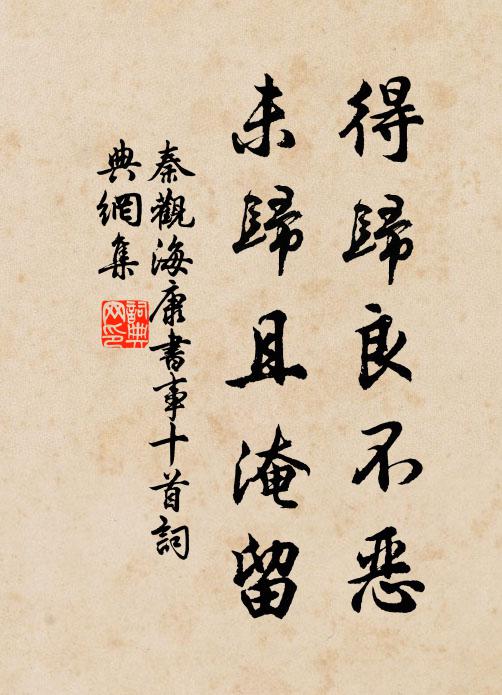 得歸良不惡
未歸且淹留
秦觀海康書事十首詞
典網集
詞典网印